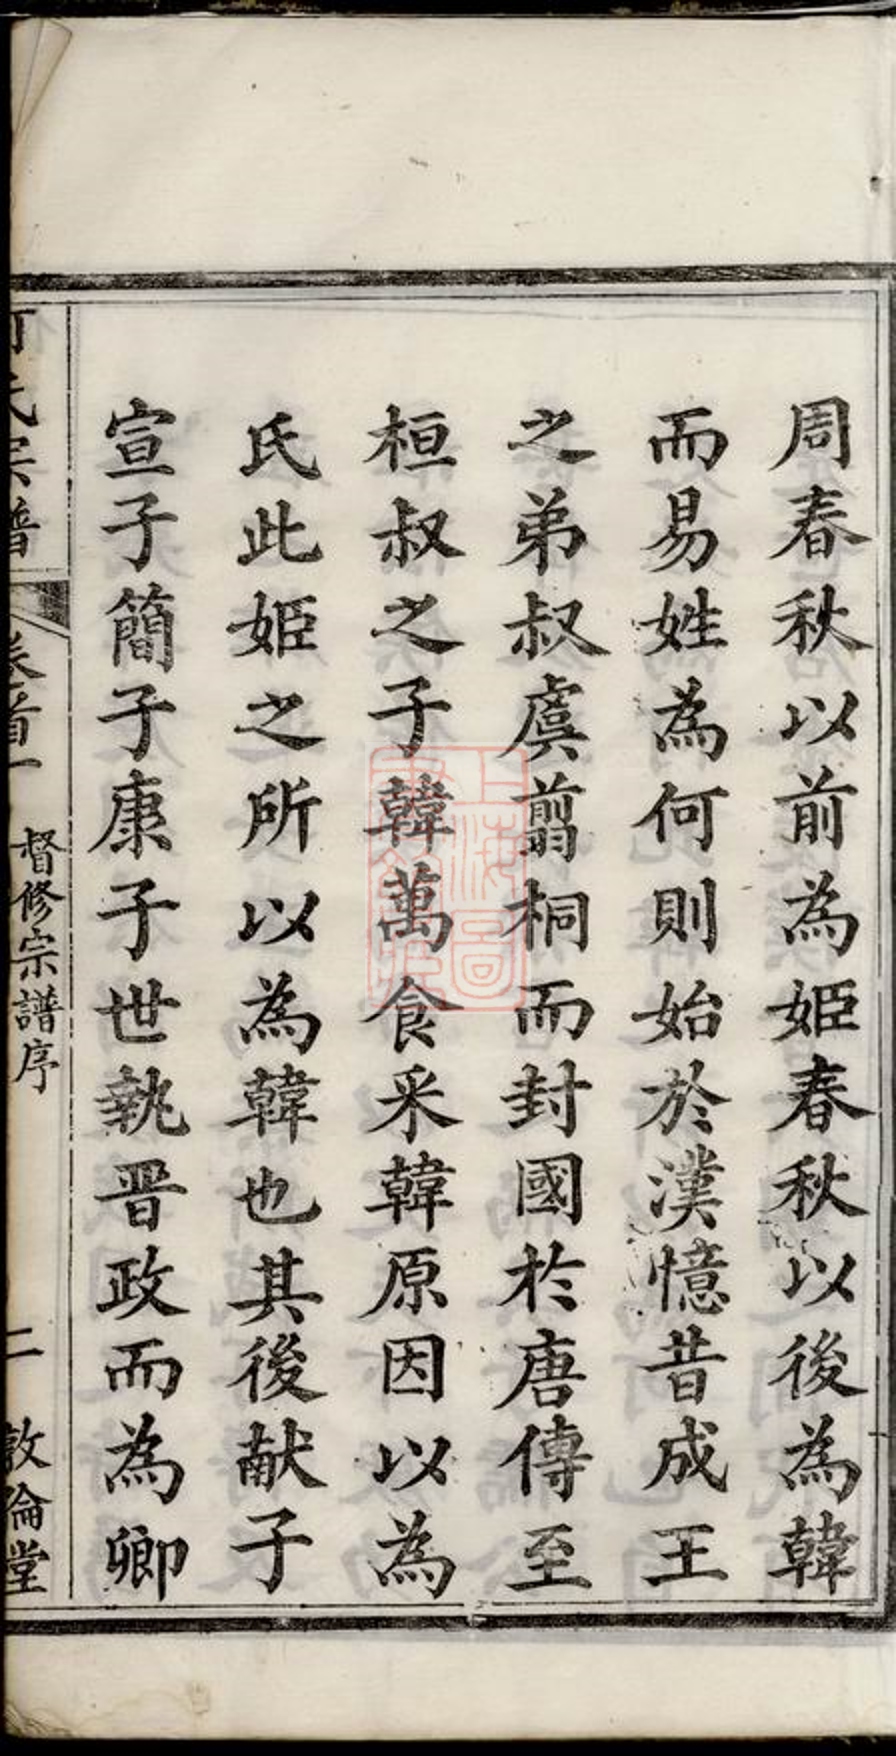 周春秋以前為姬春秋以後為韓
而易姓為何則始於漢憶昔成王
之弟叔虞翦桐而封國於唐傳至
桓叔之子韓萬食釆韓原因以為
氏此姬之所以為韓也其後献子
宣子簡子康子世執晋政而為卿
何氏宗譜
卷首一
督修宗譜序
二
敦倫堂
上海圖